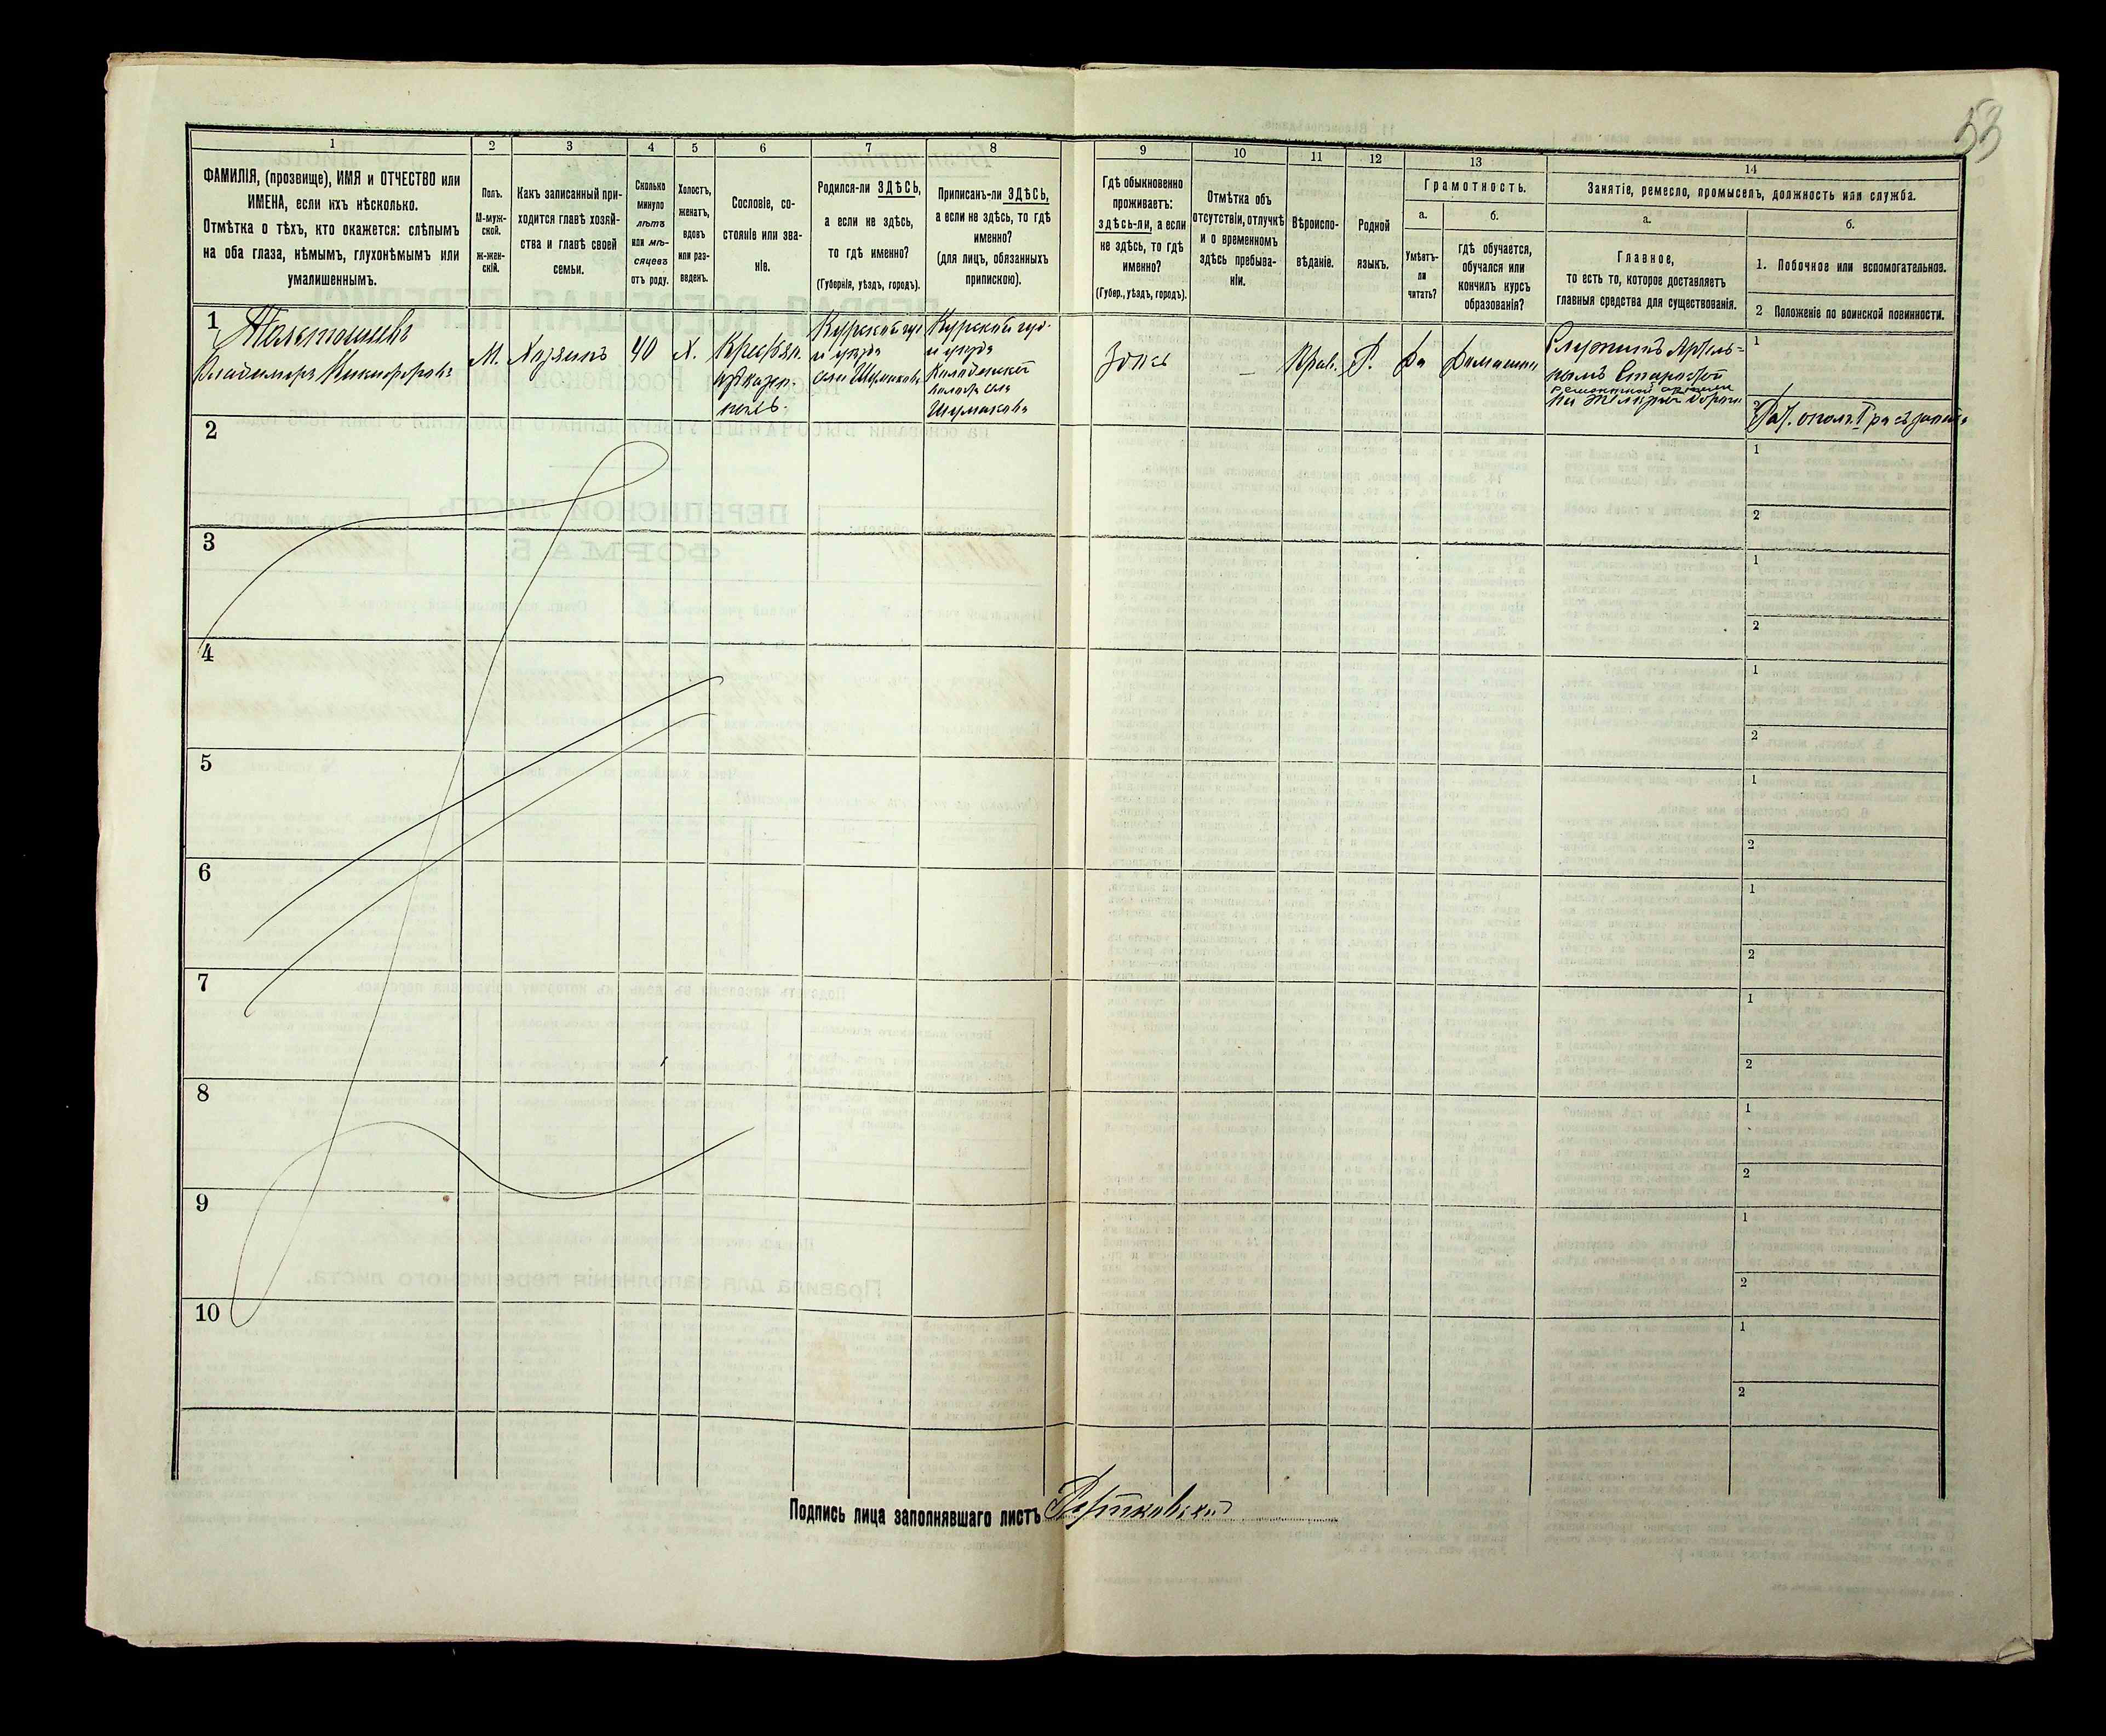 53
1
2
3
4
5
6
7
8
9
10
11
12
13
14
ФАМИЛІЯ, (прозвище), ИМЯ и ОТЧЕСТВО или
ИМЕНА, если ихъ нѣсколько.
Отмѣтка о тѣхъ, кто окажется: слѣпымъ
на оба глаза, нѣмымъ, глухонѣмымъ или
умалишеннымъ.
Полъ.
М-муж-
ской.
ж-жен-
скій.
Какъ записанный при-
ходится главѣ хозяй-
ства и главѣ своей
семьи.
Сколько
минуло
лѣтъ
или мѣ-
сяцевъ
отъ роду.
Холостъ,
женатъ,
вдовъ
или раз-
веденъ.
Сословіе, со-
стояніе или зва-
ніе.
Родился-ли ЗДѢСЬ,
а если не здѣсь,
то гдѣ именно?
(Губернія, уѣздъ, городъ).
Приписанъ-ли ЗДѢСЬ,
а если не здѣсь, то гдѣ
именно?
(для лицъ, обязанныхъ
припискою).
Гдѣ обыкновенно
проживаетъ:
здѣсь-ли, а если
не здѣсь, то гдѣ
именно?
(Губер., уѣздъ, городъ).
Отмѣтка объ
отсутствіи, отлучкѣ
и о временномъ
здѣсь пребыва-
ніи.
Вѣроиспо-
вѣданіе.
Родной
языкъ.
Грамотность.
а.
Умѣетъ-
ли
читать?
б.
гдѣ обучается,
обучался или
кончилъ курсъ
образованія?
Занятіе, ремесло, промыселъ, должность или служба.
а.
Главное,
то есть то, которое доставляетъ
главныя средства для существованія.
б.
1. Побочное или вспомогательное.
2 Положеніе по воинской повинности.
1
Владимиръ Никифоровъ
М.
Хозяинъ
40
Х.
Крестьян.
Курской гу
и уѣзда
Курской губ.
и уѣзда
Шумакова
Здѣсь
—
Прав.
Р.
Да
Домашн
Служитъ Артель-
нымъ Старостой
1
2
2
1
2
3
1
2
4
1
2
5
1
2
6
1
2
7
1
2
8
1
2
9
1
2
10
1
2
Подпись лица заполнявшаго листъ